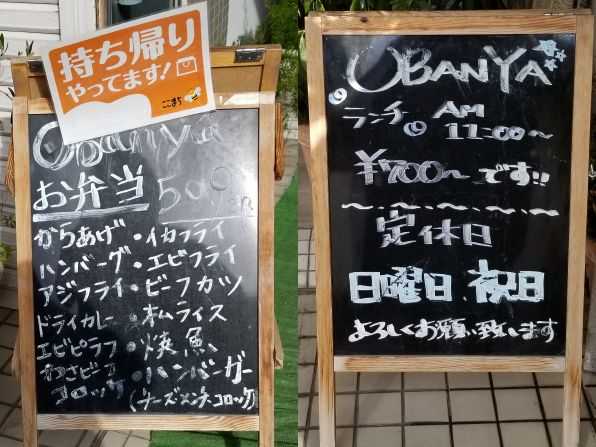 持ち帰り
やってます!
ここまち
Obanya
お弁当 500yen
からあげ・イカフライ
ハンバーグ・エビフライ
アジフライ・ビーフカツ
ドライカレー・オムライス
エビピラフ・焼魚
コロッケ・ハンバーガー
(チーズ・メンチ・コロッケ)
OBANYA
ランチ AM
11:00〜
¥700〜です!!
定休日
日曜日、祝日
よろしくお願い致します